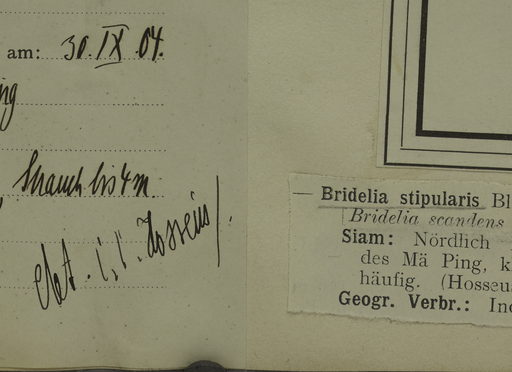 am: 30. IX 04.
Strauch bis 4 m
det. Hosséus
— Bridelia stipularis Bl
Bridelia scandens
Siam: Nördlich
des Mä Ping, k
häufig. (Hosseus
Geogr. Verbr.: Ind